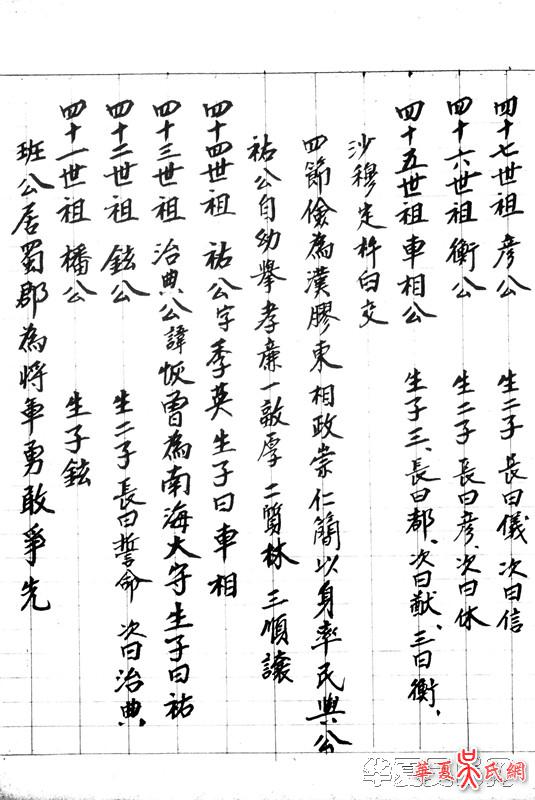 班公居蜀郡為將軍勇敢爭先
四十一世祖 橎公 生子鉉
四十二世祖 鉉公 生二子長曰誓命 次曰治典、
四十三世祖 治典公諱恢曾為南海大守生子曰祐
四十四世祖 祐公字季英生子曰車相
祐公自幼舉孝廉一敦厚二質林三順讓
四節儉為漢膠東相政崇仁簡以身率民與公
沙穆定杵臼交
四十五世祖車相公 生子三、長曰都、次曰猷、三曰衡、
四十六世祖 衡公 生二子 長曰彥、次曰休
四十七世祖 彥公 生二子 長曰儀 次曰信
華夏吴氏網